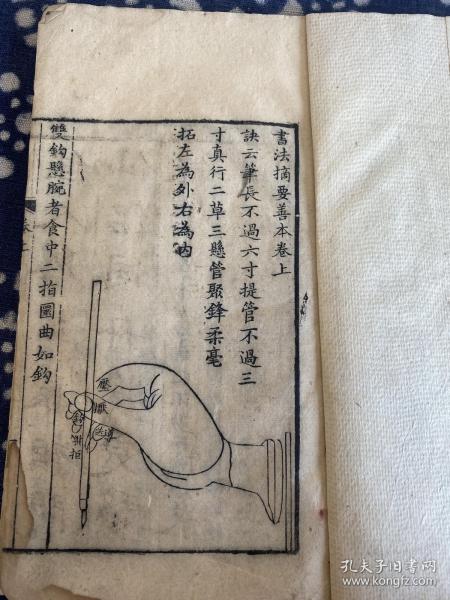 書法摘要善本卷上
訣云筆長不過六寸提管不過三
寸真行二草三懸管聚鋒柔毫
拓左為外右為內
雙鈎懸腕者食中二指圓曲如鈎
壓
鈎
拒
孔夫子旧书网
www.kongfz.com